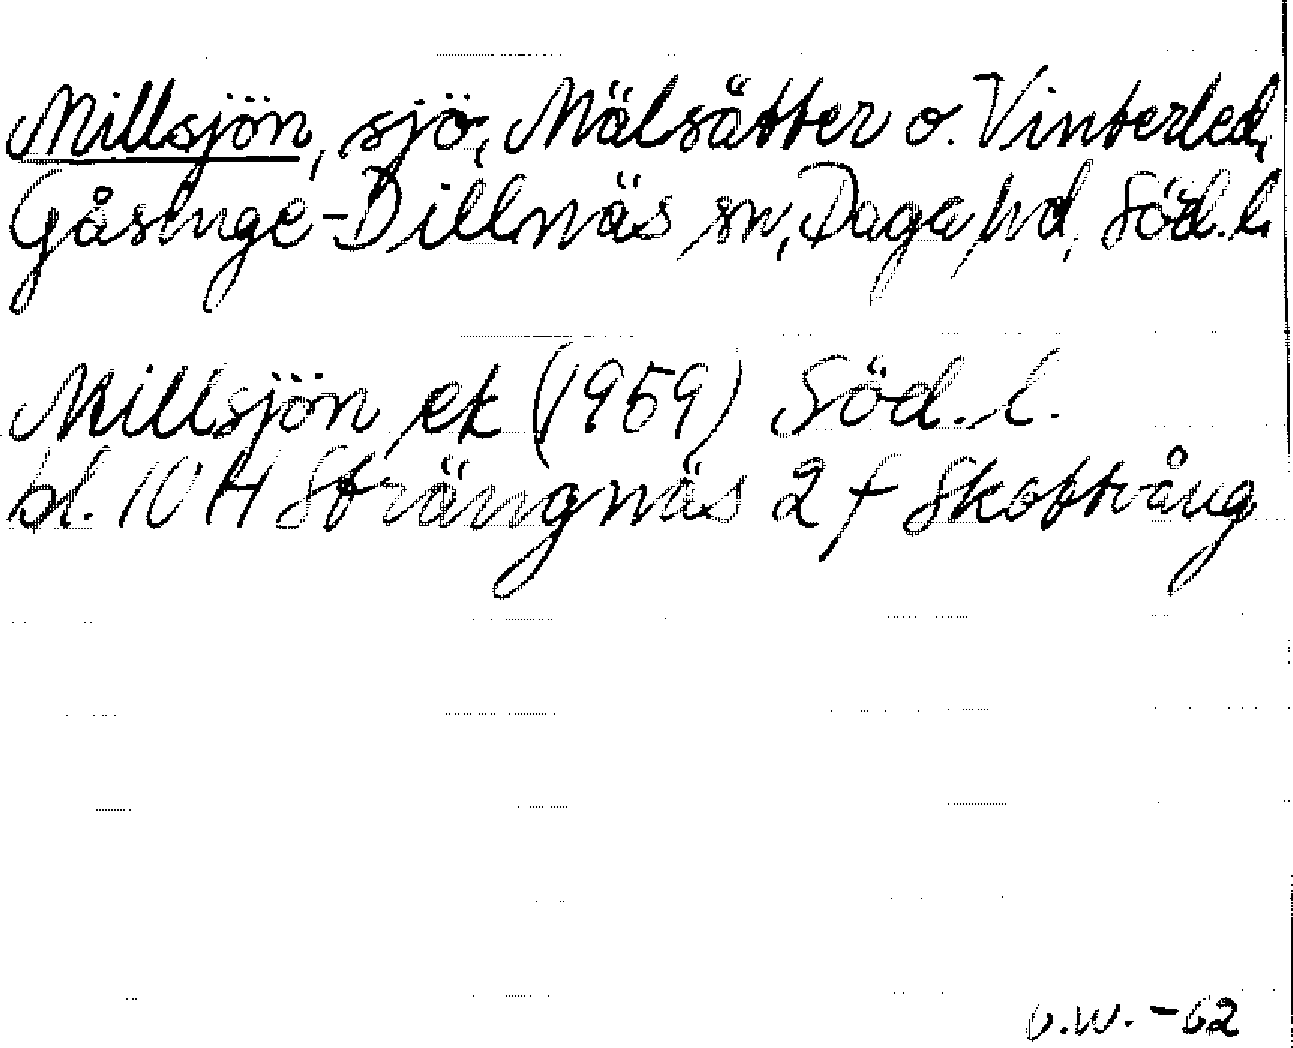 Millsjön, sjö, Mälsätter o. Vinterled,
Gåsinge-Dillnäs sn, Daga hd, Söd. l.
Millsjön ek (1959) Söd. l.
bl. 10 H Strängnäs 2 f Skottvång
v.w. -62